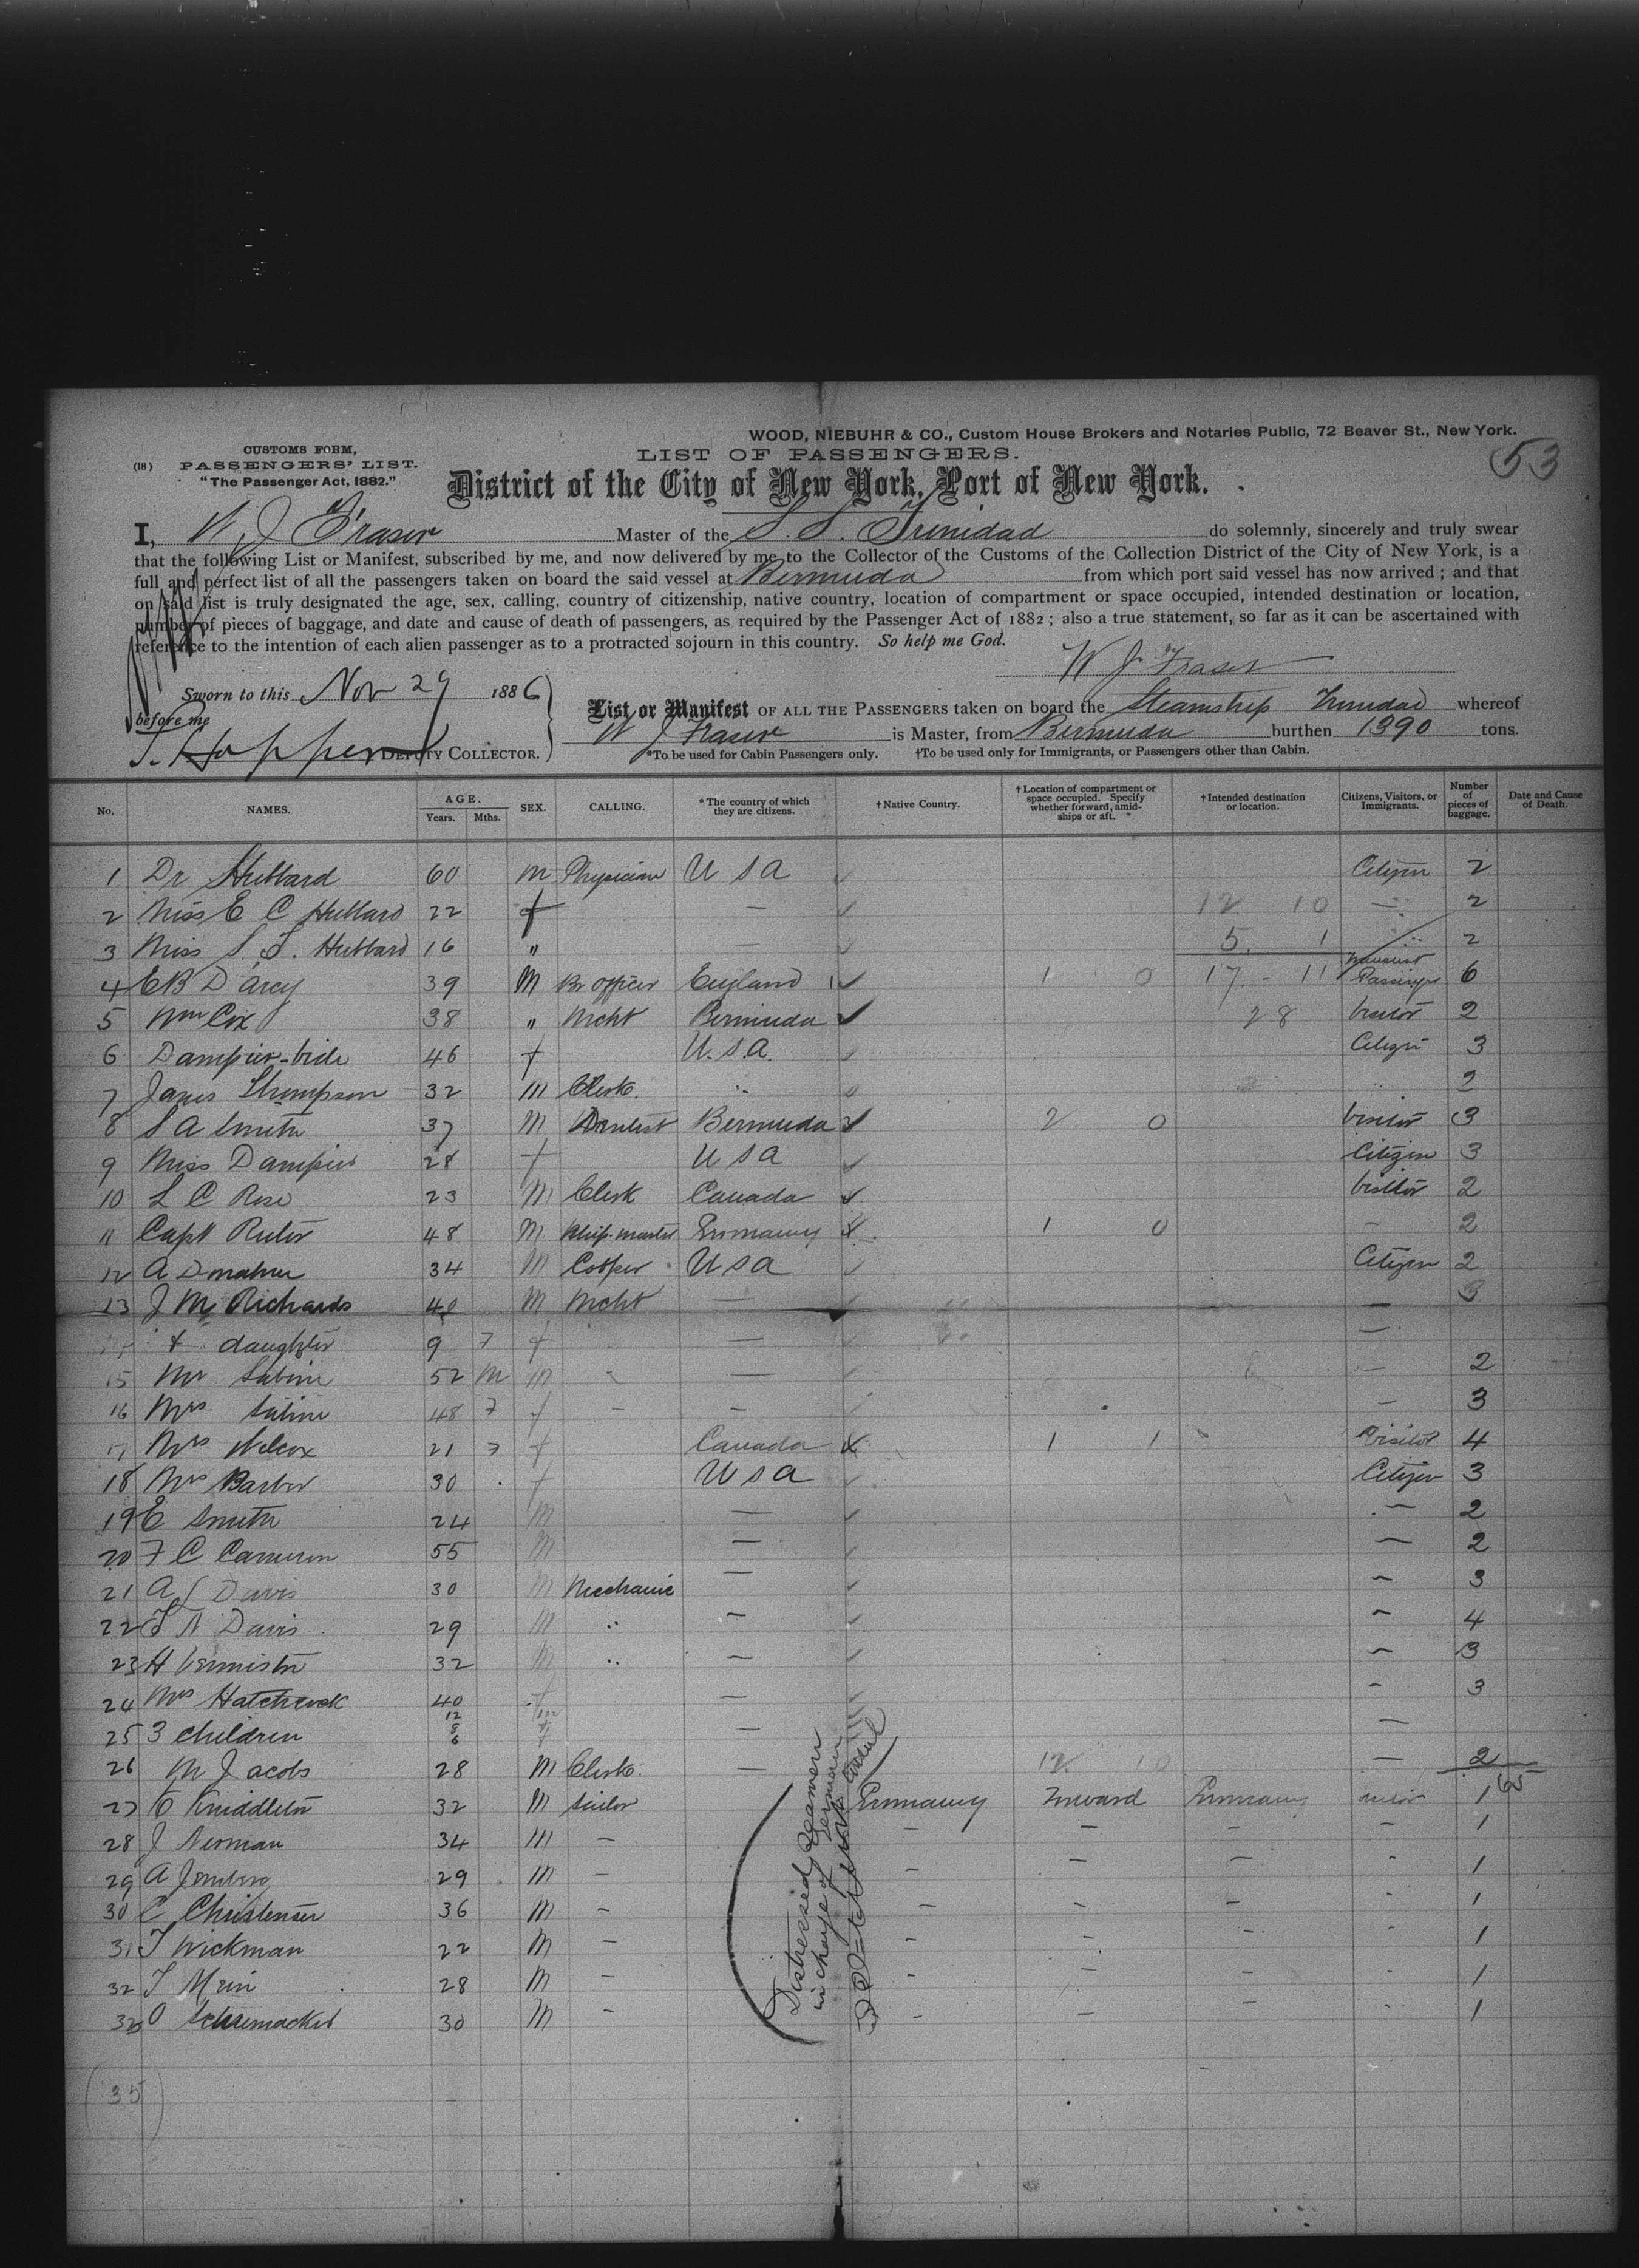 WOOD, NIEBUHR & CO., Custom House Brokers and Notaries Public, 72 Beaver St., New York.
CUSTOMS FORM,
(18) PASSENGERS' LIST.
"The Passenger Act, 1882."
LIST OF PASSENGERS.
53
District of the City of New York, Port of New York.
I, W J Fraser Master of the S. S. Trinidad do solemnly, sincerely and truly swear
that the following List or Manifest, subscribed by me, and now delivered by me to the Collector of the Customs of the Collection District of the City of New York, is a
full and perfect list of all the passengers taken on board the said vessel at Bermuda from which port said vessel has now arrived; and that
on said list is truly designated the age, sex, calling, country of citizenship, native country, location of compartment or space occupied, intended destination or location,
number of pieces of baggage, and date and cause of death of passengers, as required by the Passenger Act of 1882; also a true statement, so far as it can be ascertained with
reference to the intention of each alien passenger as to a protracted sojourn in this country. So help me God.
W J Fraser
Sworn to this Nov 29 1886
before me
DEPUTY COLLECTOR.
List or Manifest OF ALL THE PASSENGERS taken on board the Steamship Trinidad whereof
W J Fraser is Master, from Bermuda burthen 1390 tons.
*To be used for Cabin Passengers only. †To be used only for Immigrants, or Passengers other than Cabin.
No. NAMES. AGE. Years. Mths. SEX. CALLING. *The country of which they are citizens. †Native Country. †Location of compartment or space occupied. Specify whether forward, amidships or aft. †Intended destination or location. Citizens, Visitors, or Immigrants. Number of pieces of baggage. Date and Cause of Death.
1 Dr Hubbard 60 M Physician U S A Citizen 2
2 Miss E C Hubbard 22 f — 12 10 — 2
3 Miss S. J. Hubbard 16 " — 5. 1 2
4 E B D'Arcy 39 M Br officer England 1 0 17 - 11 Passenger 6
5 Wm Cox 38 " Mcht Bermuda 28 Visitor 2
6 Dampier-bide 46 f U.S.A. Citizen 3
7 James Thompson 32 M Clerk. 2
8 S A Smith 37 M Dentist Bermuda 2 0 Visitor 3
9 Miss Dampier 28 f U S A Citizen 3
10 L C Rose 23 M Clerk Canada Visitor 2
11 Capt Ruter 48 M Ship-master Germany 1 0 — 2
12 A Donahue 34 M Cooper U S A Citizen 2
13 J M Richards 40 M Mcht — — 3
& daughter 9 f — —
15 Mr Sabine 52 M — — 2
16 Mrs Sabine 48 f — — — 3
17 Mrs Wilcox 21 f Canada 1 1 Visitor 4
18 Mrs Barber 30 f U S A Citizen 3
19 E Smith 24 M — — 2
20 F C Cameron 55 M — — 2
21 A Davis 30 M Mechanic — — 3
22 T N Davis 29 M — — 4
23 H 32 M — — 3
24 Mrs 40 f — — 3
25 3 children 12 8 6 — —
26 M Jacobs 28 M Clerk. — 12 10 — 2
27 C 32 M Sailor Germany Forward Germany 1
28 J Nerman 34 M — — — — — 1
29 A 29 M — — — — - 1
30 C Christenser 36 M — — — — - 1
31 T Wickman 22 M — - - - - 1
32 T Mein 28 M — - — - - 1
33 O 30 M — - — — - 1
Distressed Seamen
in charge of German
(35)